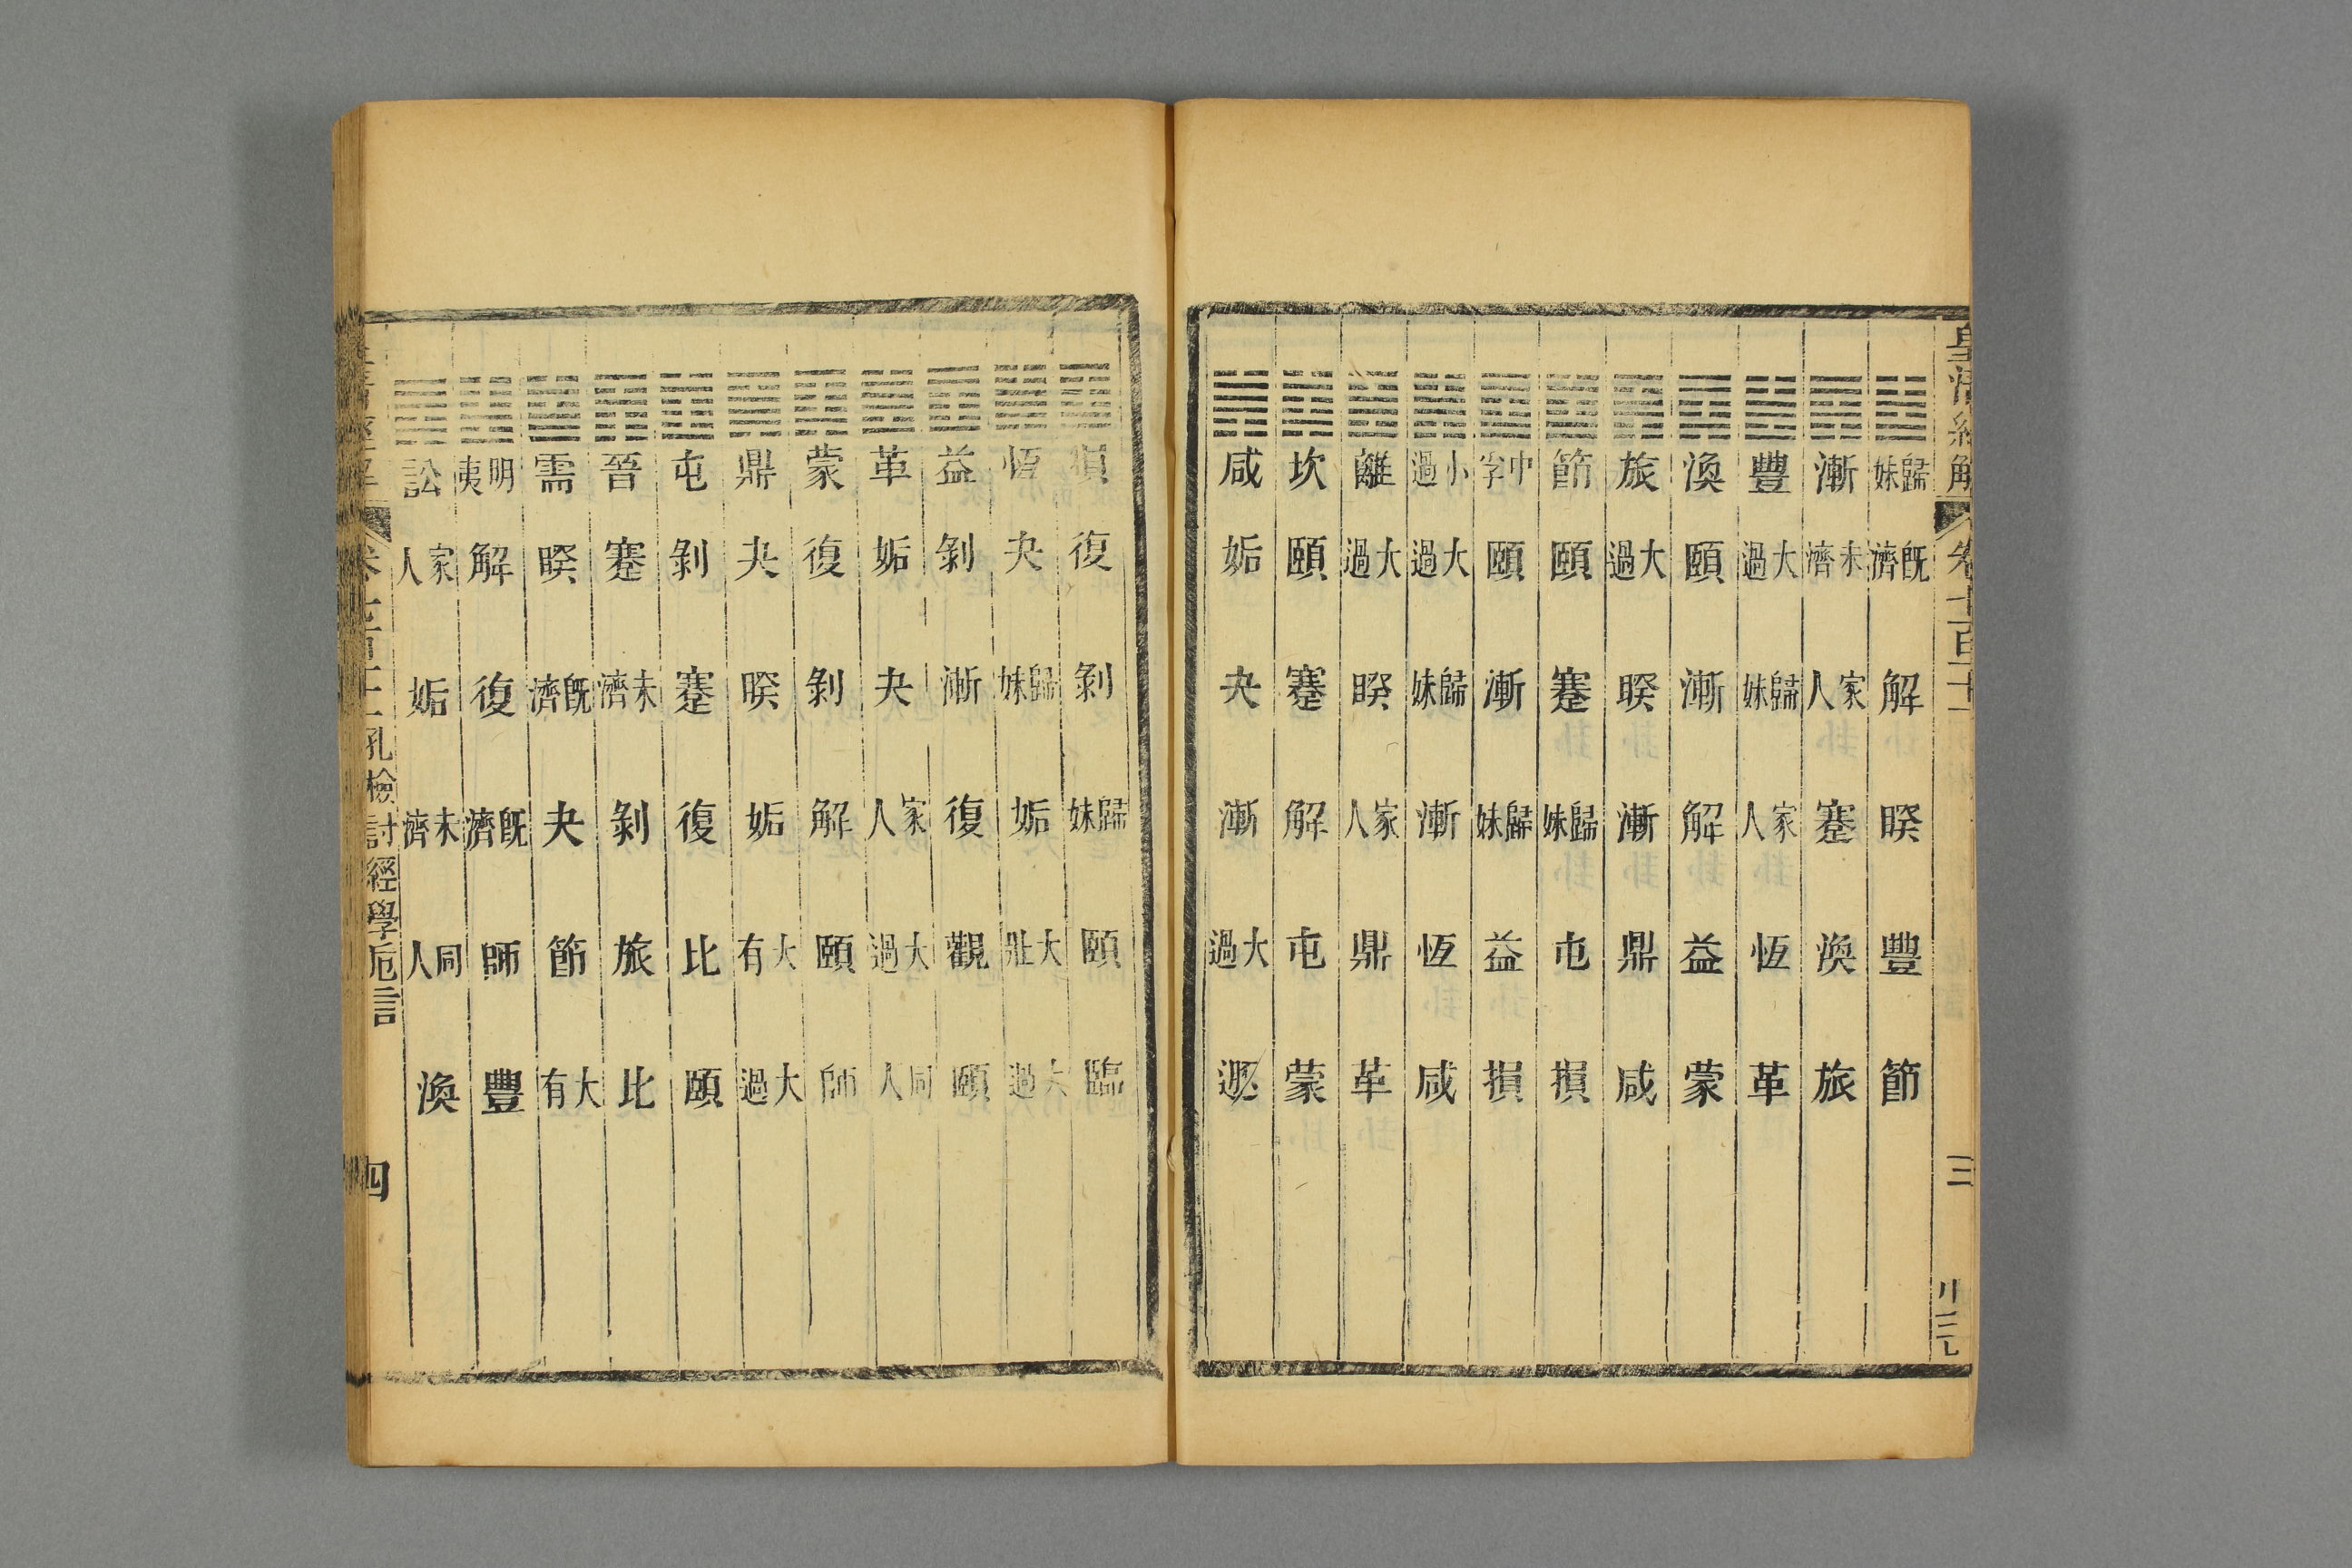 皇清經解 卷七百十一 三
歸妹 既濟 解 睽 豐 節
漸 未濟 家人 蹇 渙 旅
豐 大過 歸妹 家人 恆 革
渙 頤 漸 解 益 蒙
旅 大過 睽 漸 鼎 咸
節 頤 蹇 歸妹 屯 損
中孚 頤 漸 歸妹 益 損
小過 大過 歸妹 漸 恆 咸
離 大過 睽 家人 鼎 革
坎 頤 蹇 解 屯 蒙
咸 姤 夬 漸 大過 遯
損 復 剝 歸妹 頤 臨
恆 夬 歸妹 姤 大壯 大過
益 剝 漸 復 觀 頤
革 姤 夬 家人 大過 同人
蒙 復 剝 解 頤 師
鼎 夬 睽 姤 大有 大過
屯 剝 蹇 復 比 頤
晉 蹇 未濟 剝 旅 比
需 睽 既濟 夬 節 大有
明夷 解 復 既濟 師 豐
訟 家人 姤 未濟 同人 渙
孔檢討經學卮言 四